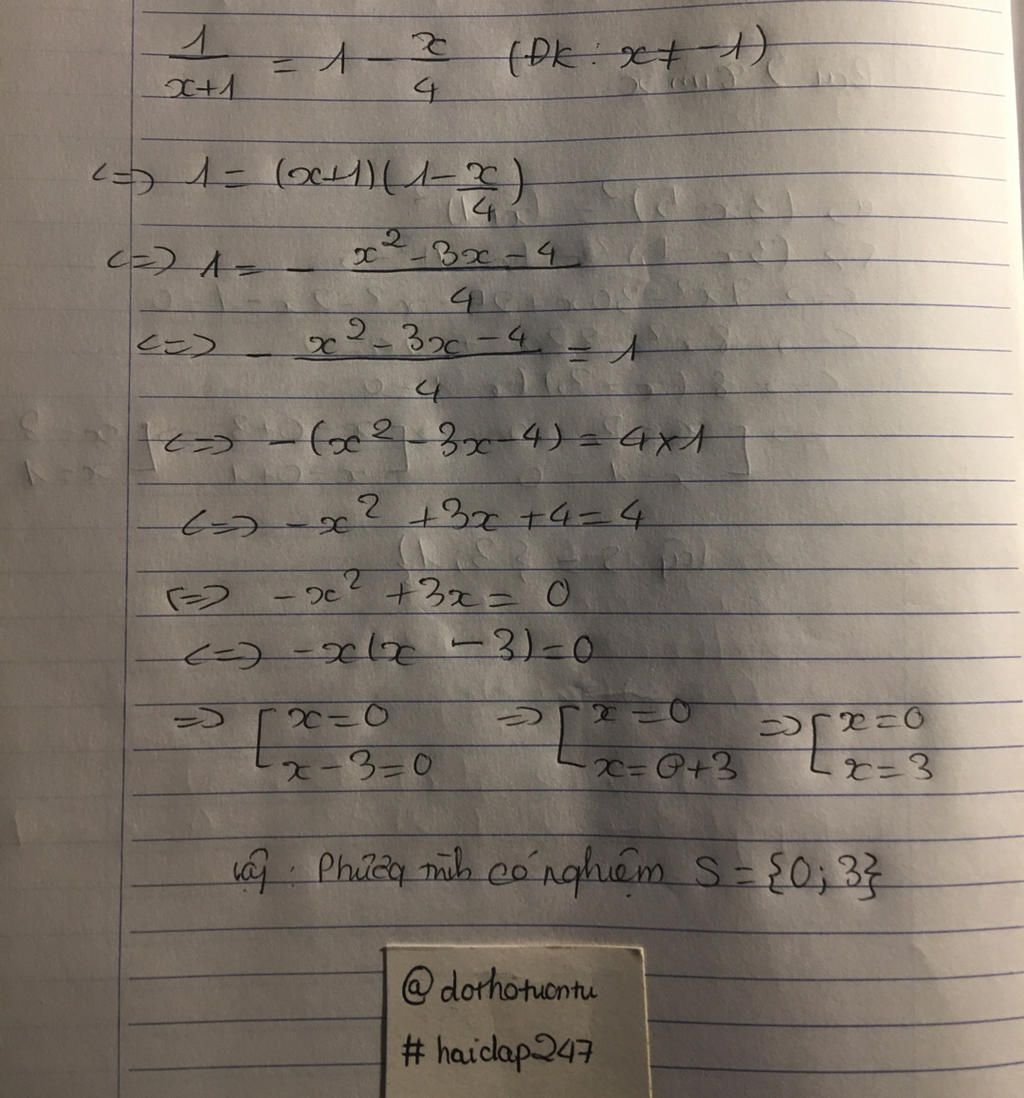 1/(x+1) = 1 - x/4 (ĐK: x ≠ -1)
<=> 1 = (x+1)(1 - x/4)
<=> 1 = - (x² - 3x - 4)/4
<=> - (x² - 3x - 4)/4 = 1
<=> -(x² - 3x - 4) = 4×1
<=> -x² + 3x + 4 = 4
<=> -x² + 3x = 0
<=> -x(x - 3) = 0
=> [ x = 0 => [ x = 0 => [ x = 0
x - 3 = 0 x = 0 + 3 x = 3
Vậy: Phương trình có nghiệm S = {0; 3}
@dorhotuontu
#haidap247